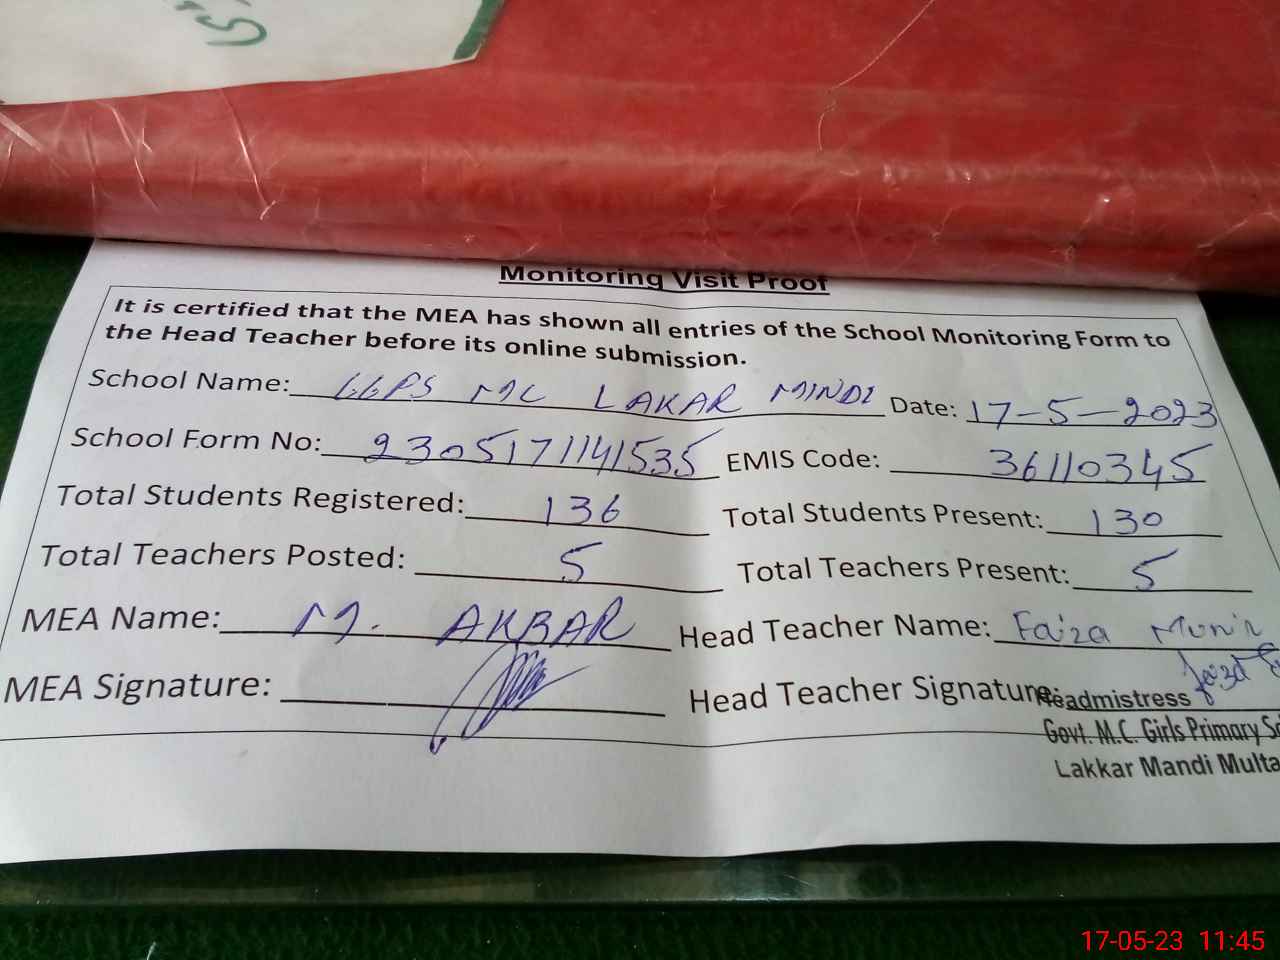 Monitoring Visit Proof
It is certified that the MEA has shown all entries of the School Monitoring Form to
the Head Teacher before its online submission.
School Name: GGPS MC LAKAR MINDI Date: 17-5-2023
School Form No: 2305171141535 EMIS Code: 36110345
Total Students Registered: 136 Total Students Present: 130
Total Teachers Posted: 5 Total Teachers Present: 5
MEA Name: M. AKBAR Head Teacher Name: Faiza Munir
MEA Signature: Head Teacher Signature:
Headmistress
Govt. M.C. Girls Primary Sc
Lakkar Mandi Multa
17-05-23 11:45